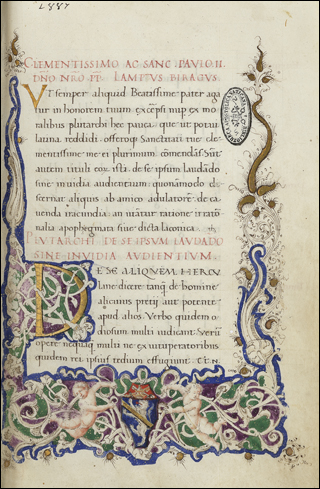 1887
CLEMENTISSIMO AC SANC. PAVIO. II.
DNO NRO PP LAMPUS BIRAGVS
VT semper aliquid Beatissime pater aga
tur in honorem tuum excepsi nup ex mo
ralibus plutarchi hec pauca que ut potui
latina reddidi offeroq; Sanctitati tue cle
mentissime me ei plurimum comendas. Sunt
autem tituli eor. ista. de se ipsum laudado
sine inuidia audientium. quonamodo di
scernat aliquis ab amico adulatore. de ca
uenda iracundia. an utatur ratione irratio
nalia. apophegmata siue dicta laconica.
PLVTARCHI DE SE IPSVM LAVDADO
SINE INVIDIA AVDIENTIVM.
DE SE ALIQVEM HERCV
lane dicere tanq de homine
alicuius pretij aut potente
apud alios. Verbo quidem o
diosum multi iudicant. Veru
opere nequaq multi ne ex uituperatoribus
quidem rei ipsius tedium effugiunt.